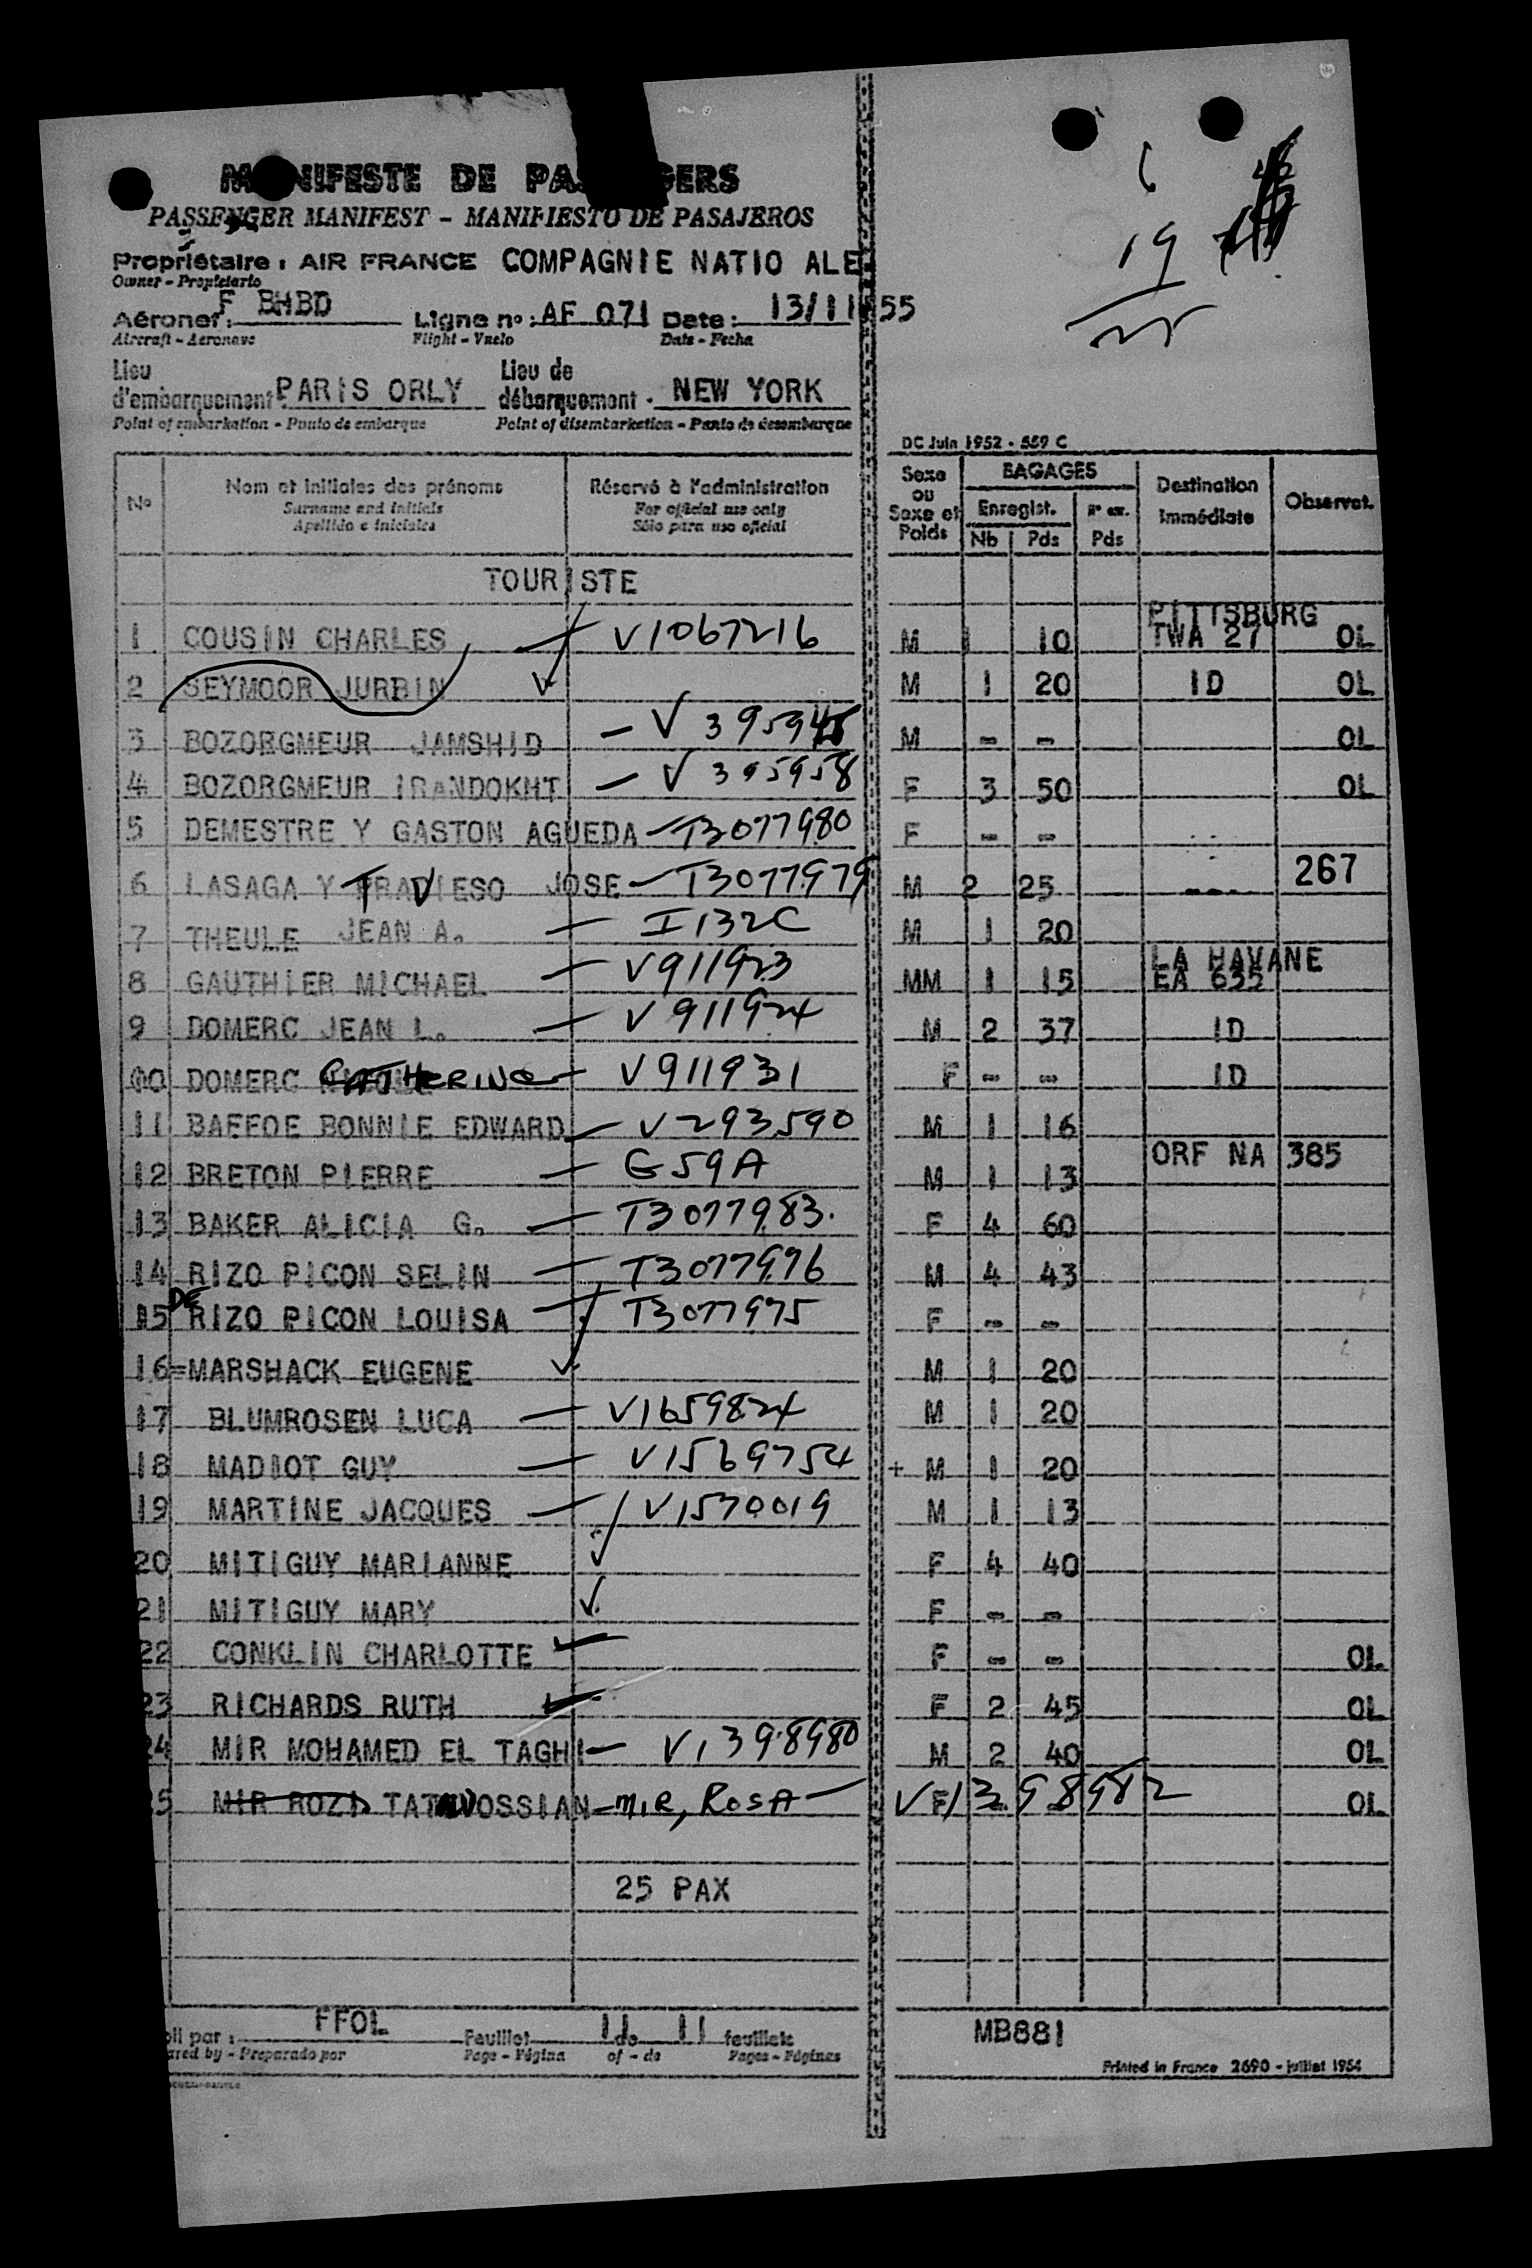 MANIFESTE DE PASSAGERS
PASSENGER MANIFEST - MANIFIESTO DE PASAJEROS
Propriétaire : AIR FRANCE COMPAGNIE NATIO ALE
Owner - Propietario
Aéronef : F BHBD Ligne nº : AF 071 Date : 13/11 55
Aircraft - Aeronave Flight - Vuelo Date - Fecha
Lieu d'embarquement : PARIS ORLY Lieu de débarquement - NEW YORK
Point of embarkation - Punto de embarque Point of disembarkation - Punto de desembarque
6
19
25
DC Juin 1952 - 559 C
Nº Nom et initiales des prénoms Réservé à l'administration Sexe ou Sexe et Poids BAGAGES Destination Immédiate Observat.
Surname and initials For official use only Enregist.
Apellido e iniciales Sólo para uso oficial Nb Pds Pds
TOURISTE
PITTSBURG
1. COUSIN CHARLES V1067216 M 1 10 TWA 27 OL
2 SEYMOOR JURBIN M 1 20 ID OL
3 BOZORGMEUR JAMSHID - V M - - OL
4 BOZORGMEUR IRANDOKHT - V 395958 F 3 50 OL
5 DEMESTRE Y GASTON AGUEDA - T3077980 F - -
6 LASAGA Y JOSE - T3077979 M 2 25 --- 267
7 THEULE JEAN A. - I132C M 1 20
LA HAVANE
8 GAUTHIER MICHAEL - V911923 MM 1 15 EA 635
9 DOMERC JEAN L. - V911924 M 2 37 ID
10 DOMERC CATHERINE - V911931 F - - ID
11 BAFFOE BONNIE EDWARD - V293590 M 1 16
ORF NA 385
12 BRETON PIERRE - G59A M 1 13
13 BAKER ALICIA G. - T3077983. F 4 60
14 RIZO PICON SELIN - T3077976 M 4 43
15 DE RIZO PICON LOUISA - T3077975 F - -
16=MARSHACK EUGENE M 1 20
17 BLUMROSEN LUCA - V1659824 M 1 20
18 MADIOT GUY - V1569754 + M 1 20
19 MARTINE JACQUES - V1570019 M 1 13
20 MITIGUY MARIANNE F 4 40
21 MITIGUY MARY F - -
22 CONKLIN CHARLOTTE F - - OL
23 RICHARDS RUTH F 2 45 OL
24 MIR MOHAMED EL TAGHI - V1398980 M 2 40 OL
25 MIR ROZI TATAVOSSIAN - MIR, ROSA - V1398982 F OL
25 PAX
FFOL MB881
li par : Feuillet 11 de 11 feuillets
ared by - Preparado por Page - Página of - de Pages - Páginas
Printed in France 2690 - juillet 1954